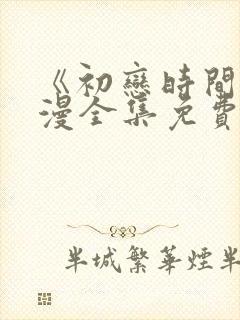 《初戀時間
漫全集免費
半城繁華煙半